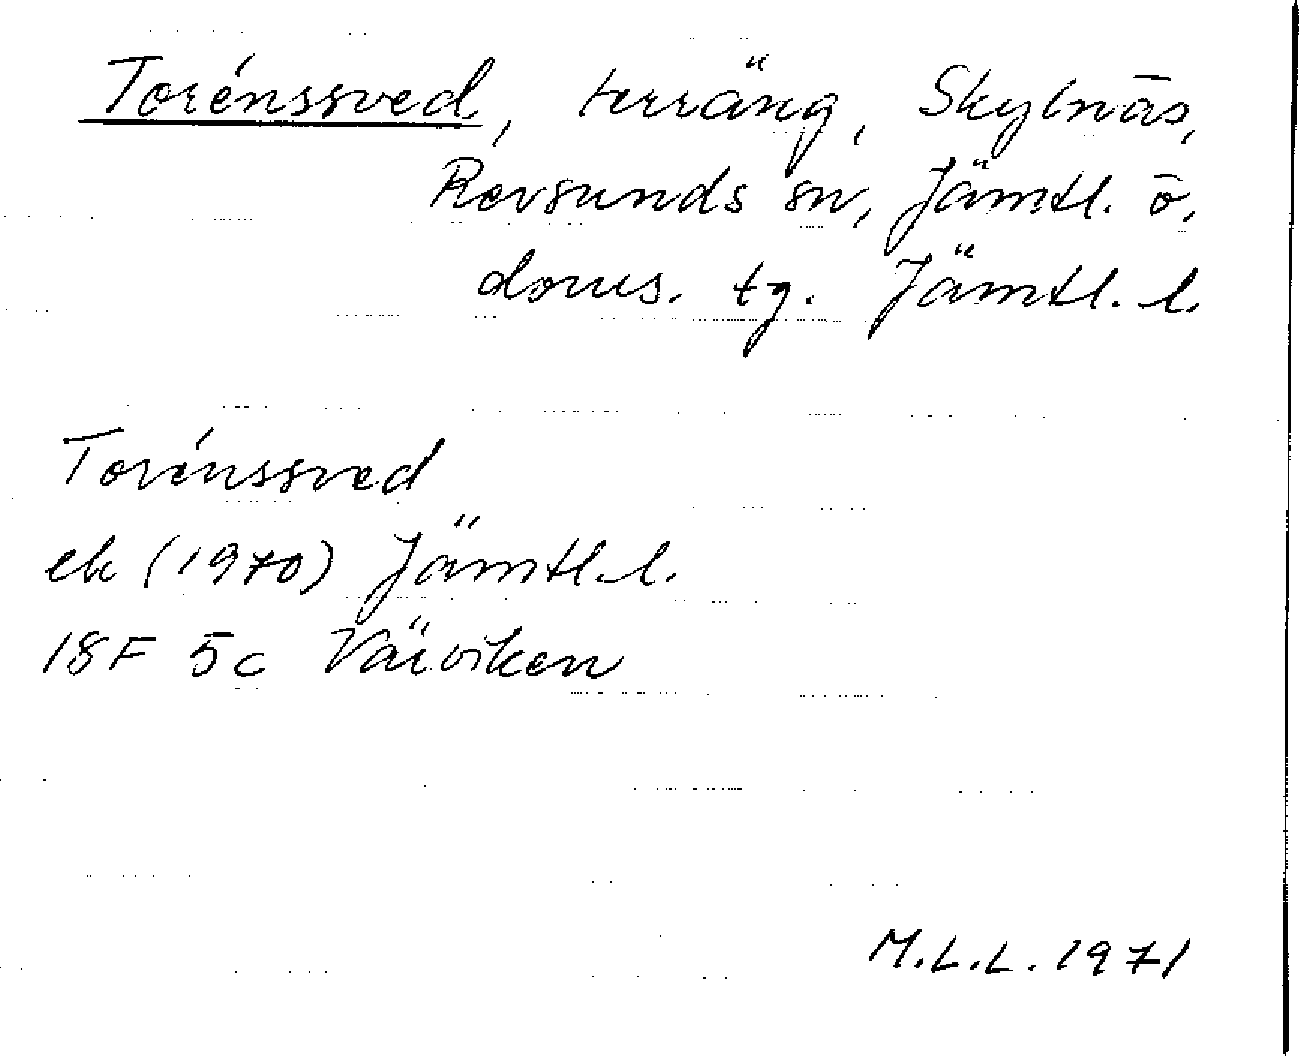 Torénssved, terräng, Skylnäs,
Revsunds sn, Jämtl. ö.
doms. tg. Jämtl. l.
Torénssved
ek (1970) Jämtl. l.
18F 5c Väviken
M.L.L. 1971